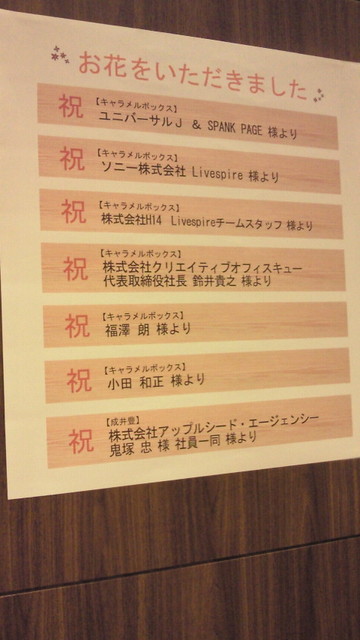 お花をいただきました
祝
【キャラメルボックス】
ユニバーサルJ & SPANK PAGE 様より
祝
【キャラメルボックス】
ソニー株式会社 Livespire 様より
祝
【キャラメルボックス】
株式会社H14 Livespireチームスタッフ 様より
祝
【キャラメルボックス】
株式会社クリエイティブオフィスキュー
代表取締役社長 鈴井貴之 様より
祝
【キャラメルボックス】
福澤 朗 様より
祝
【キャラメルボックス】
小田 和正 様より
祝
【成井豊】
株式会社アップルシード・エージェンシー
鬼塚 忠 様 社員一同 様より